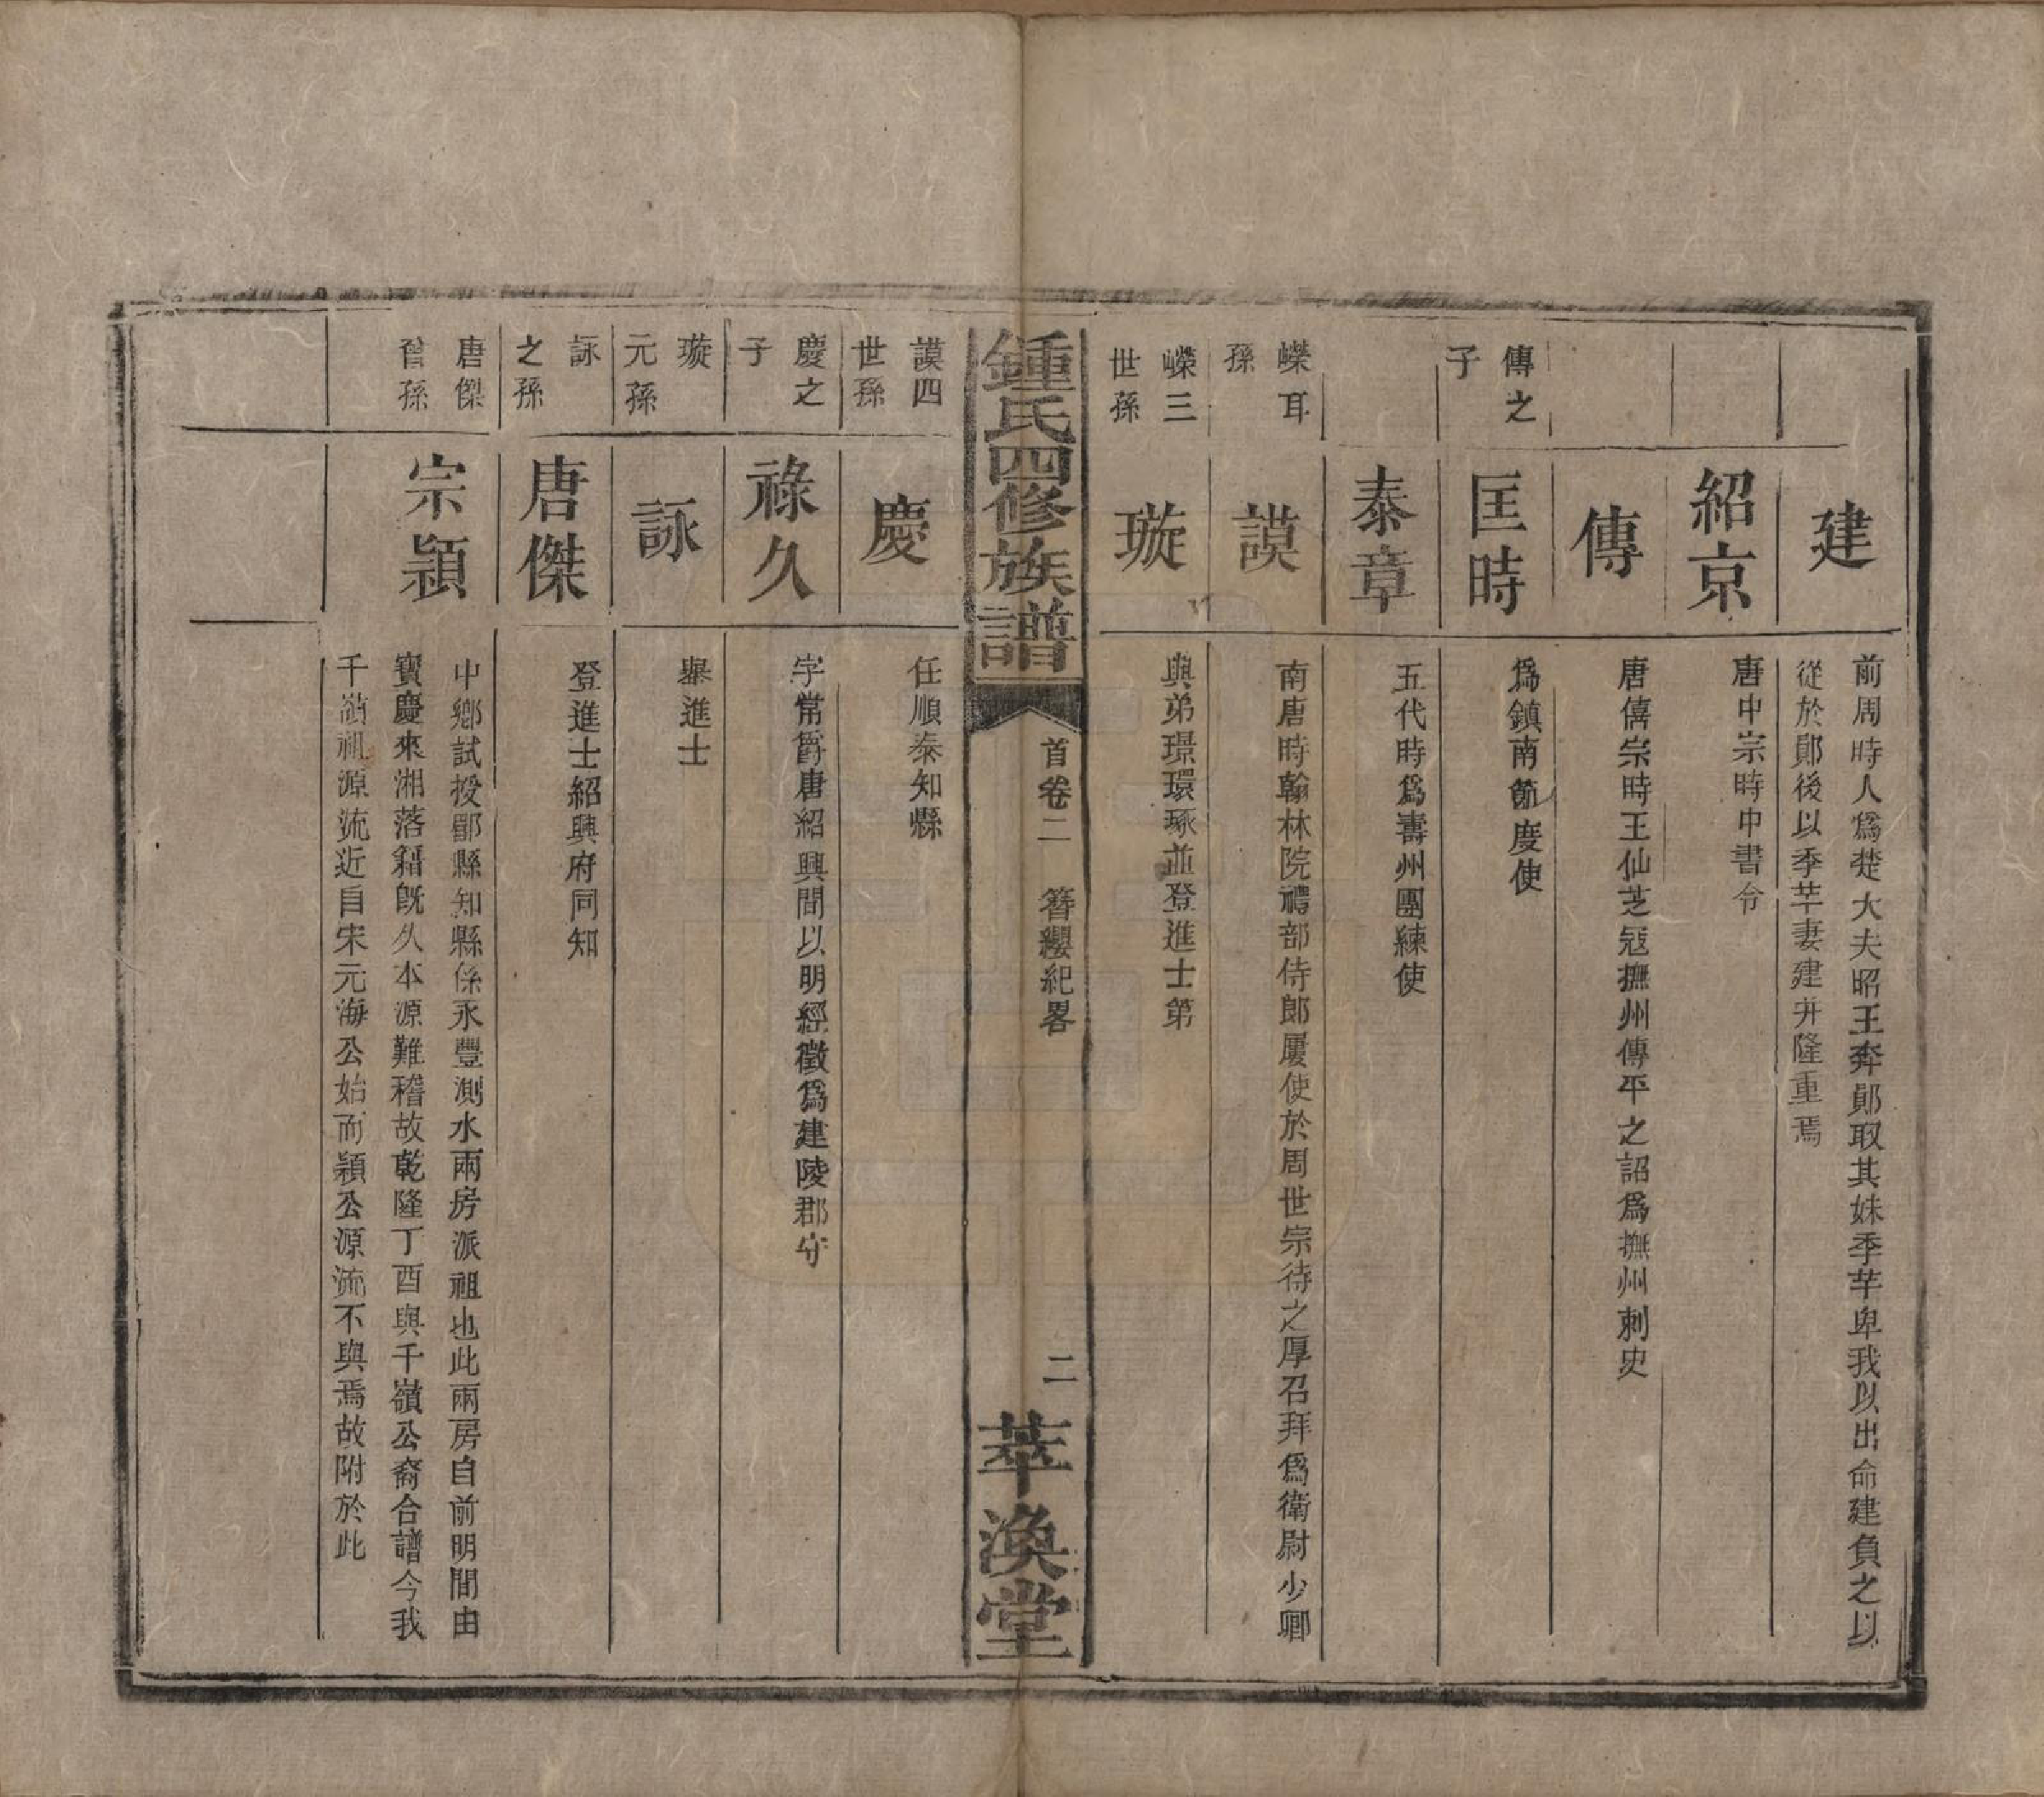 建
前周時人爲楚大夫昭王奔鄖取其妹季芊卑我以出命建負之以
從於鄖後以季芊妻建并隆重焉
紹京
唐中宗時中書令
傳
唐僖宗時王仙芝冦撫州傳平之詔爲撫州刺史
傳之
子
匡時
爲鎮南節度使
泰章
五代時爲壽州團練使
嶸耳
孫
謨
南唐時翰林院禮部侍郎屢使於周世宗待之厚召拜爲衛尉少卿
嶸三
世孫
璇
與弟璟環琢並登進士第
鍾氏四修族譜
首卷二 簪纓紀畧
二
萃渙堂
謨四
世孫
慶
任順泰知縣
慶之
子
祿久
字常爵唐紹興間以明經徵爲建陵郡守
璇
元孫
詠
舉進士
詠
之孫
唐傑
登進士紹興府同知
唐傑
曾孫
宗穎
中鄉試授酃縣知縣係永豐測水兩房派祖也此兩房自前明間由
寶慶來湘落籍旣久本源難稽故乾隆丁酉與千嶺公裔合譜今我
千嶺祖源流近自宋元海公始而穎公源流不與焉故附於此